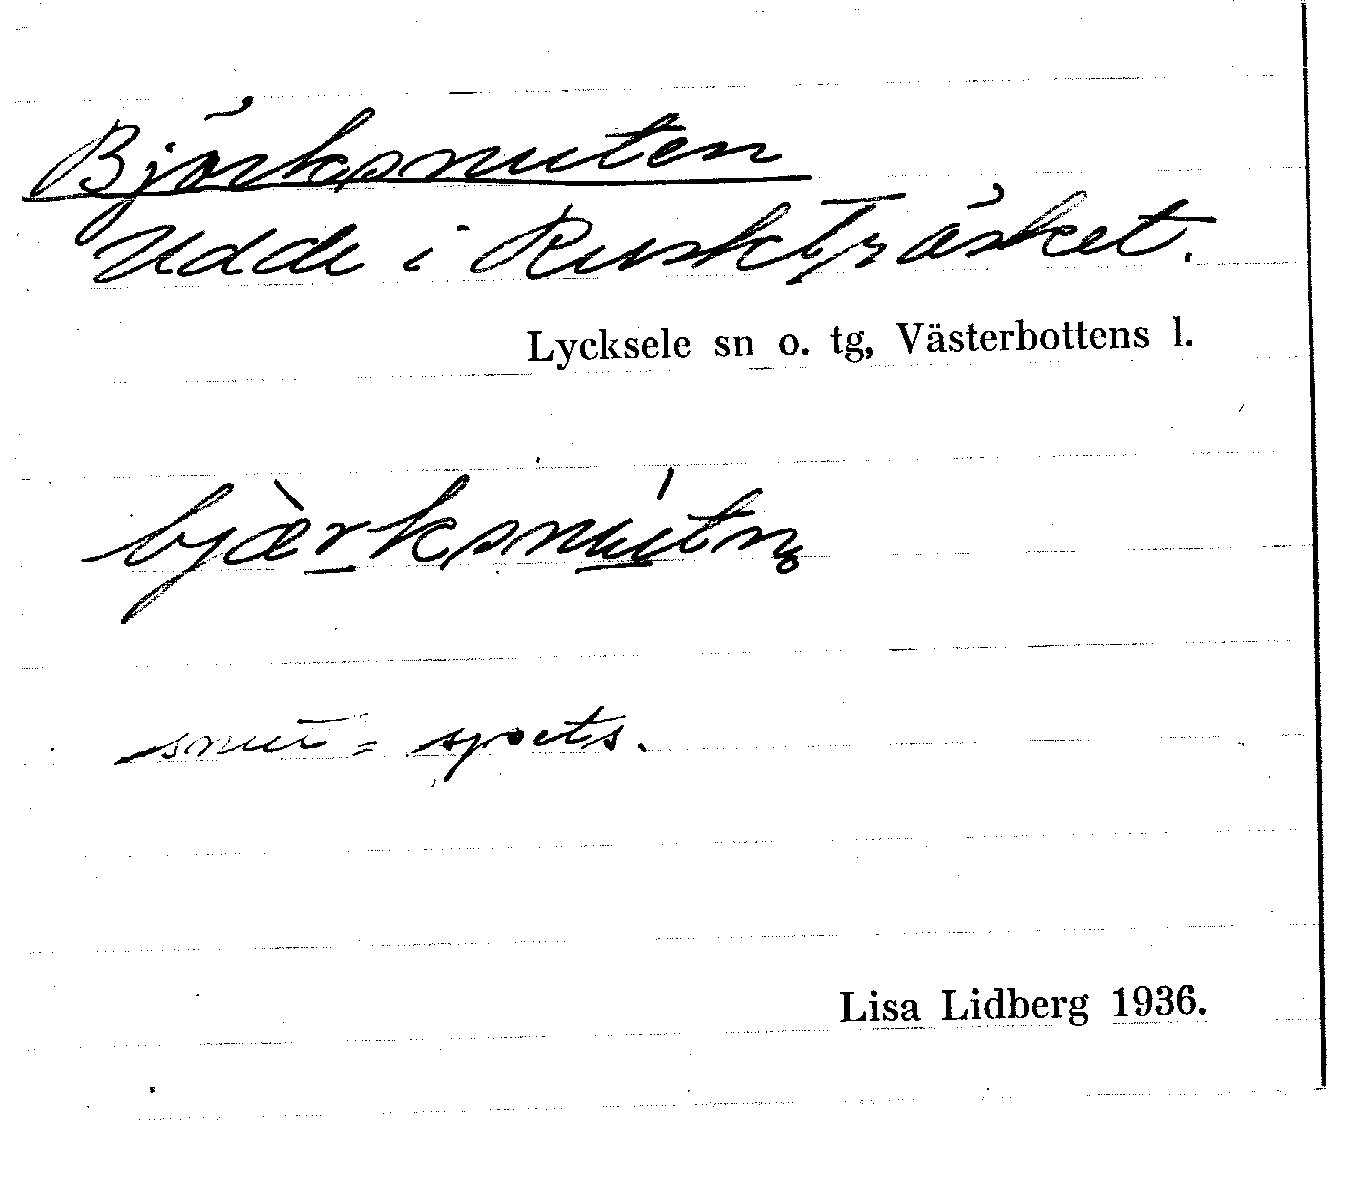 Björksnuten
Udde i Ruskträsket.
Lycksele sn o. tg, Västerbottens l.
bjæ̀rksnútn̥
snut = spets.
Lisa Lidberg 1936.